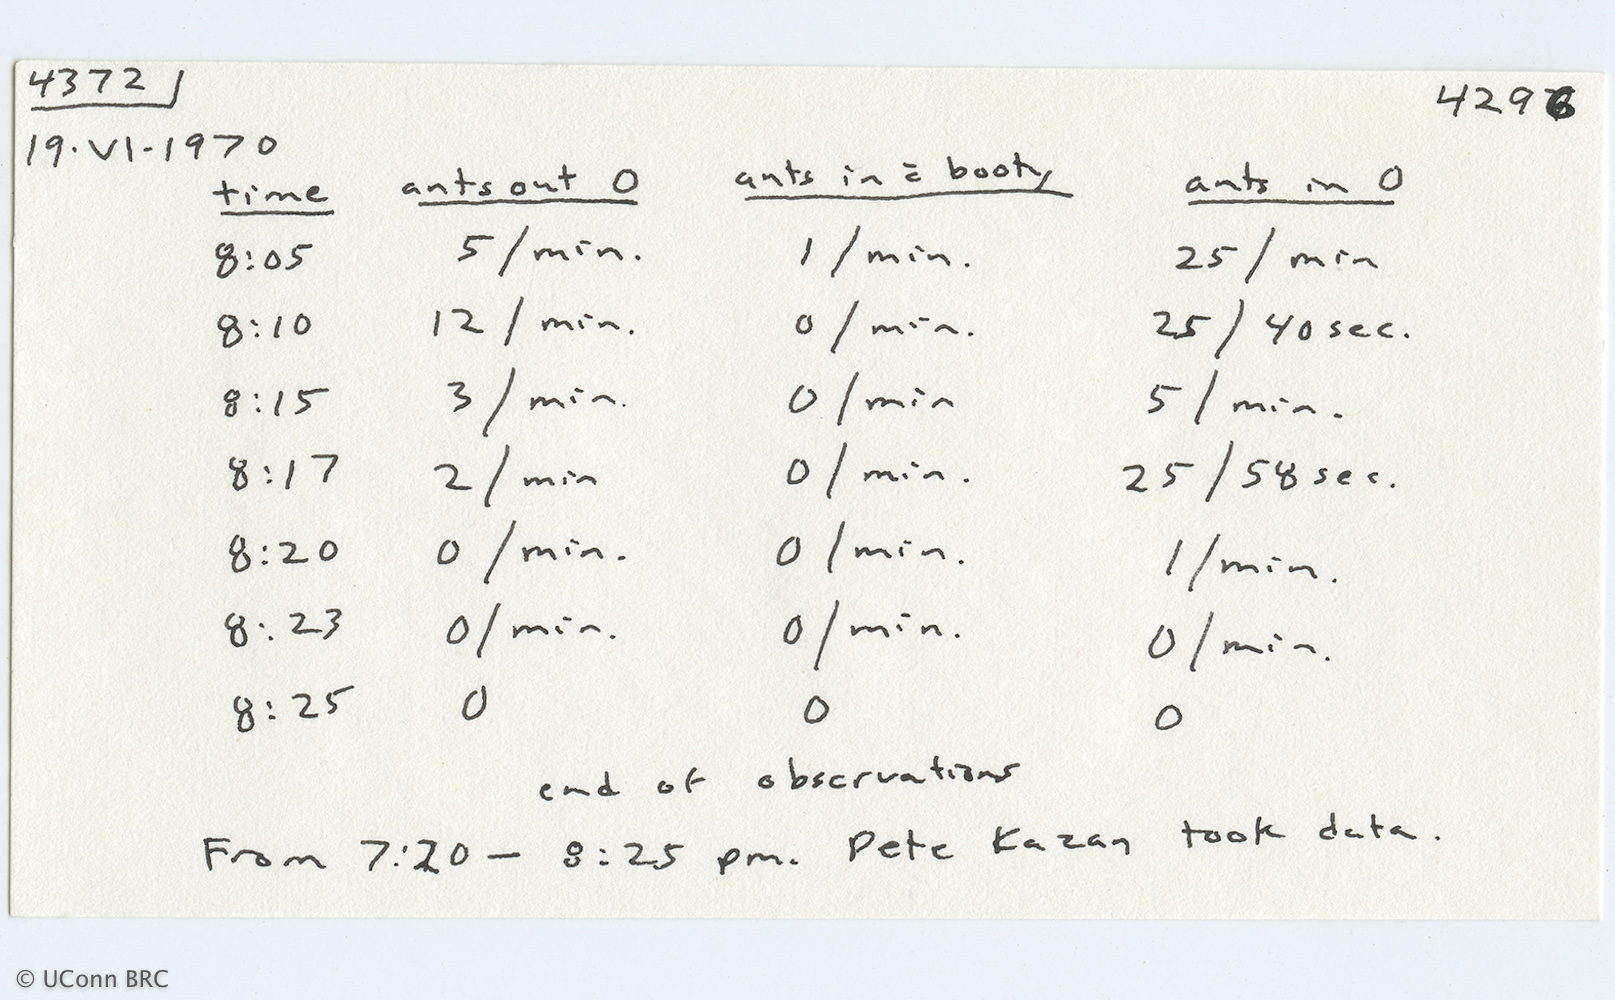 4372 4296
19·VI-1970
time ants out 0 ants in c̄ booty ants in 0
8:05 5/min. 1/min. 25/min
8:10 12/min. 0/min. 25/40 sec.
8:15 3/min. 0/min 5/min.
8:17 2/min 0/min. 25/58 sec.
8:20 0/min. 0/min. 1/min.
8:23 0/min. 0/min. 0/min.
8:25 0 0 0
end of observations
From 7:20 – 8:25 pm. Pete Kazan took data.
© UConn BRC